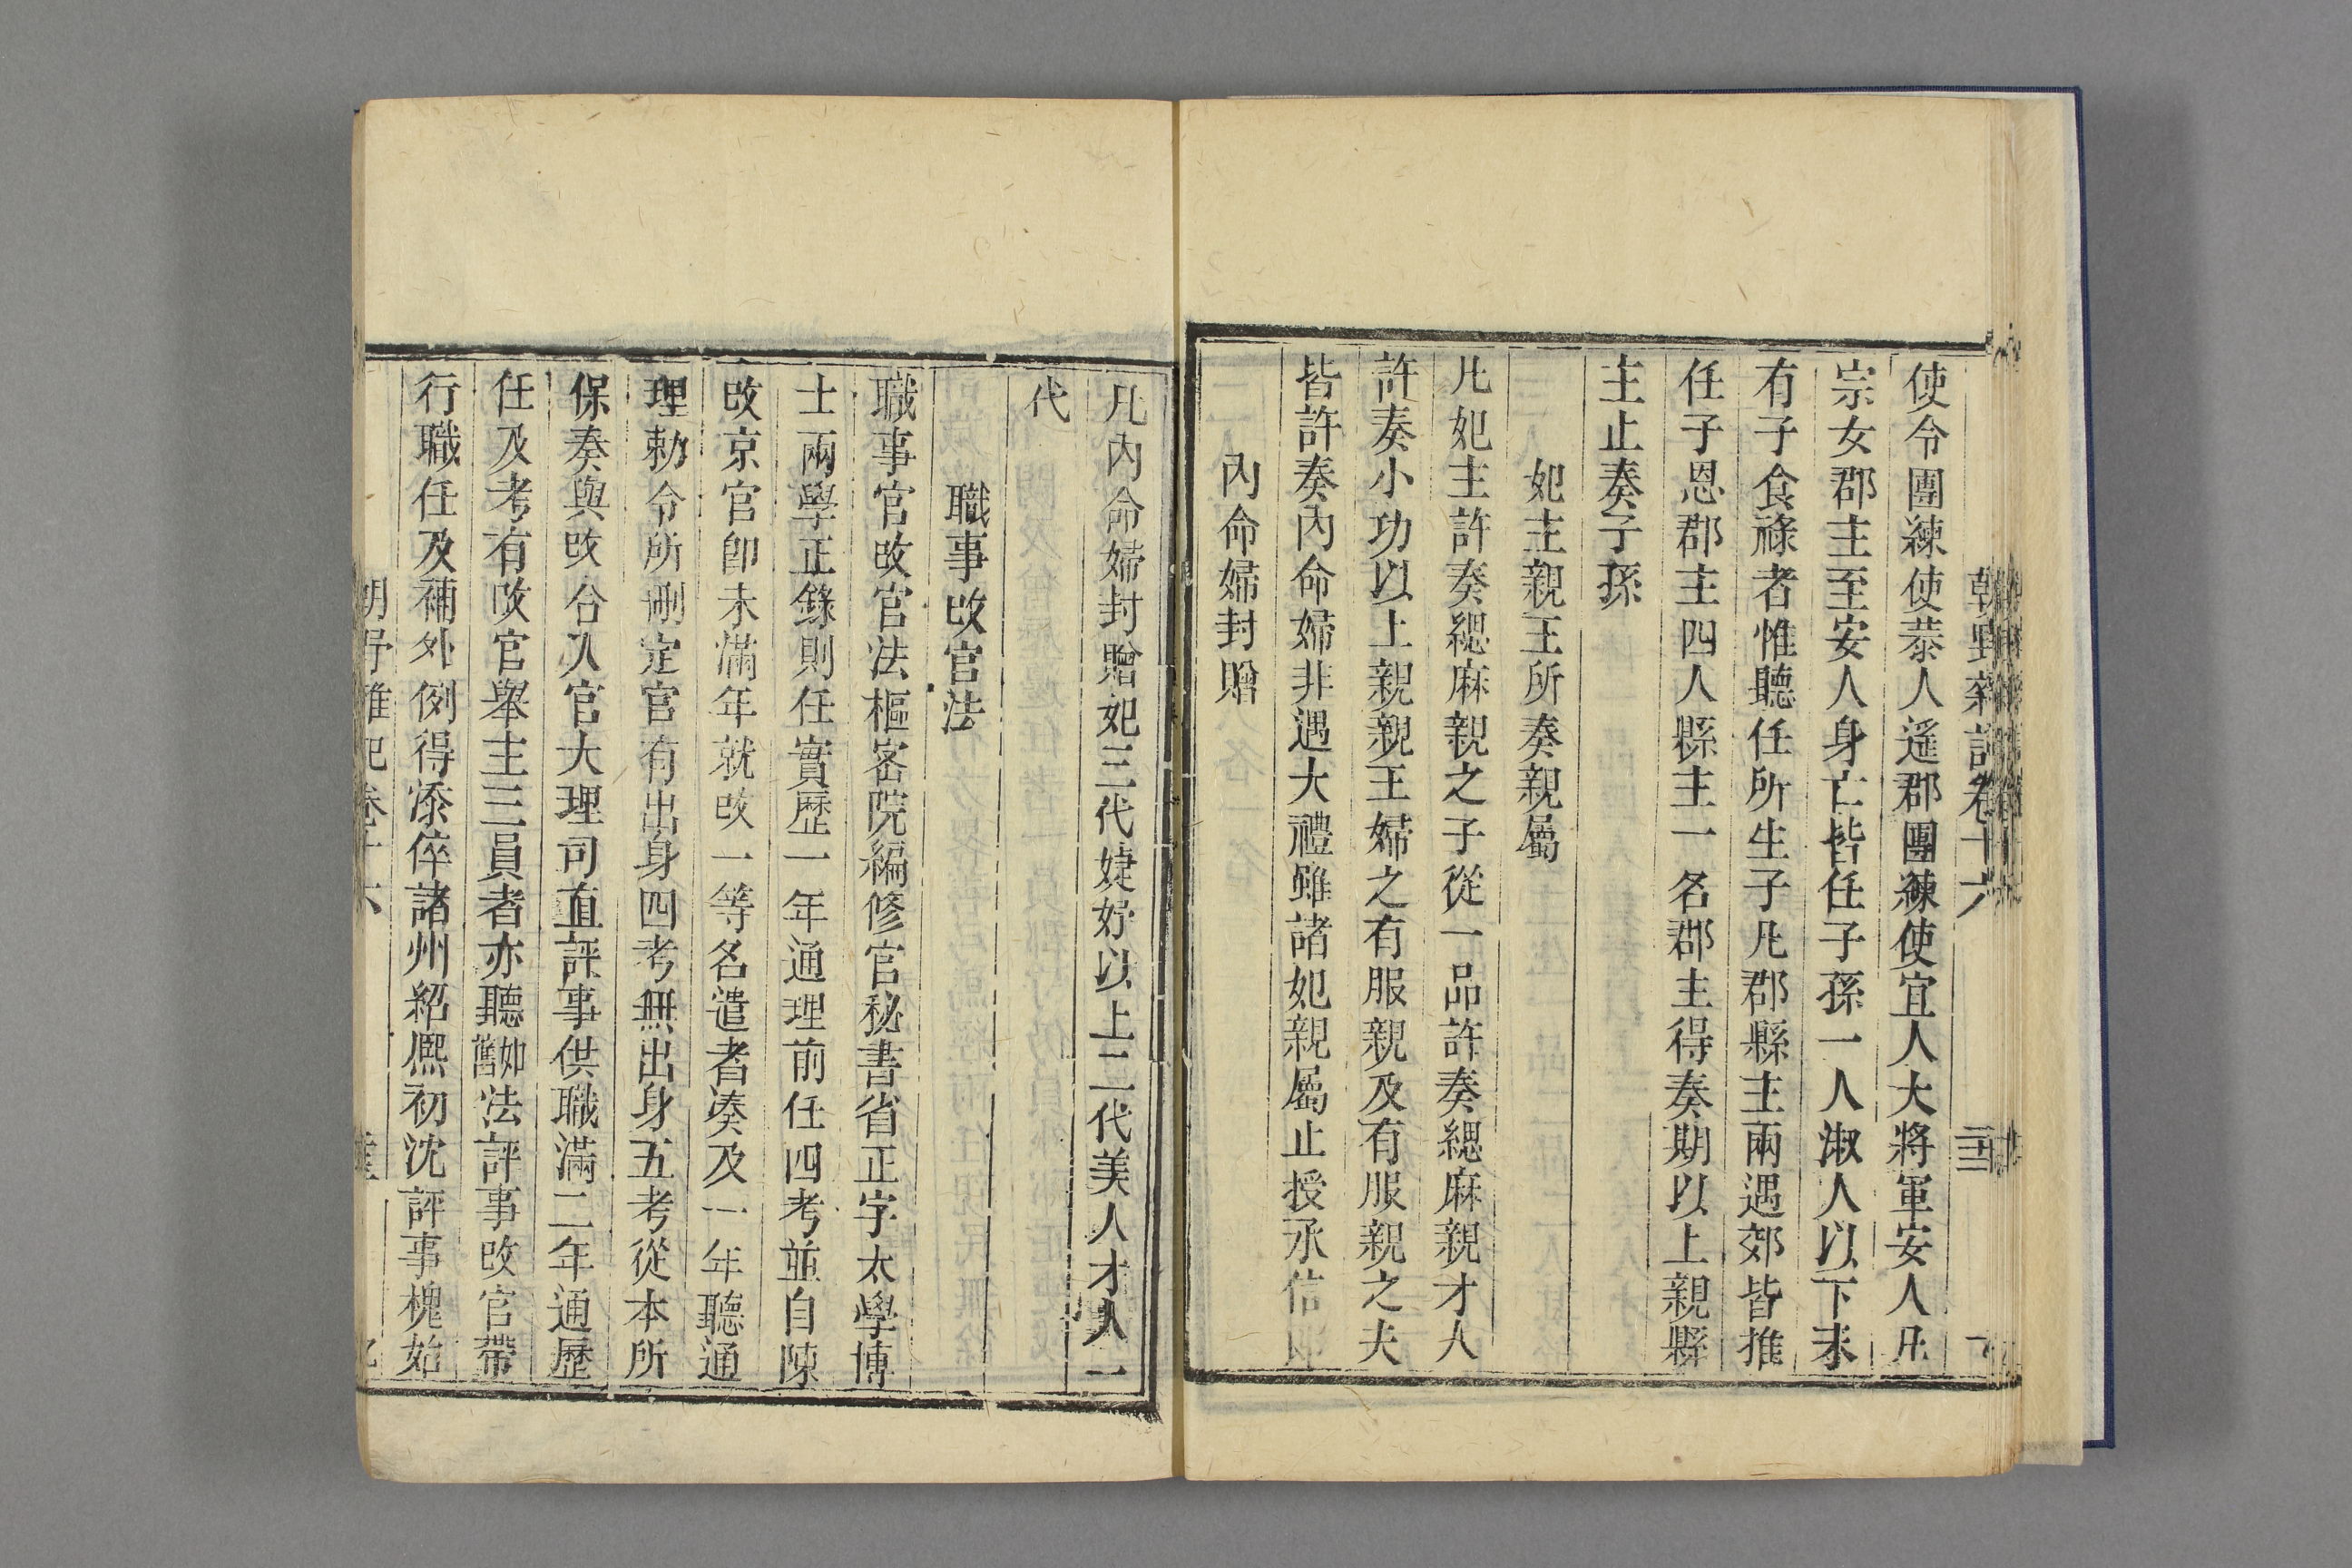 朝野雜記卷十六
使令團練使恭人遥郡團練使宜人大將軍安人凡
宗女郡主至安人身亡皆任子孫一人淑人以下未
有子食祿者惟聽任所生子凡郡縣主兩遇郊皆推
任子恩郡主四人縣主一名郡主得奏期以上親縣
主止奏子孫
妃主親王所奏親屬
凡妃主許奏緦麻親之子從一品許奏緦麻親才人
許奏小功以上親親王婦之有服親及有服親之夫
皆許奏內命婦非遇大禮雖諸妃親屬止授承信
內命婦封贈
凡內命婦封贈妃三代婕妤以上二代美人才人一
代
職事改官法
職事官改官法樞密院編修官秘書省正字太學博
士兩學正錄則任實歷一年通理前任四考並自陳
改京官卽未滿年就改一等名遣者湊及一年聽通
理勅令所刪定官有出身四考無出身五考從本所
保奏與改合入官大理司直評事供職滿二年通歷
任及考有改官舉主三員者亦聽如舊法評事改官帶
行職任及補外例得添倅諸州紹熙初沈評事槐始
朝野雜記卷十六